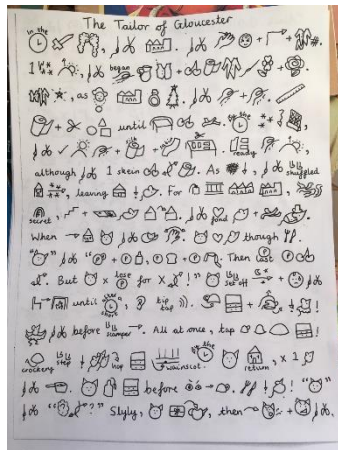 The Tailor of Gloucester
in the
1 began
as
until the
ready
although 1 skein As shuffled
leaving For
secret fond
When though
Then
But lose for X set off
until shore tip tap
before scamper All at once, tap
crockery step hop wainscot the return, x 1
before
Slyly, then